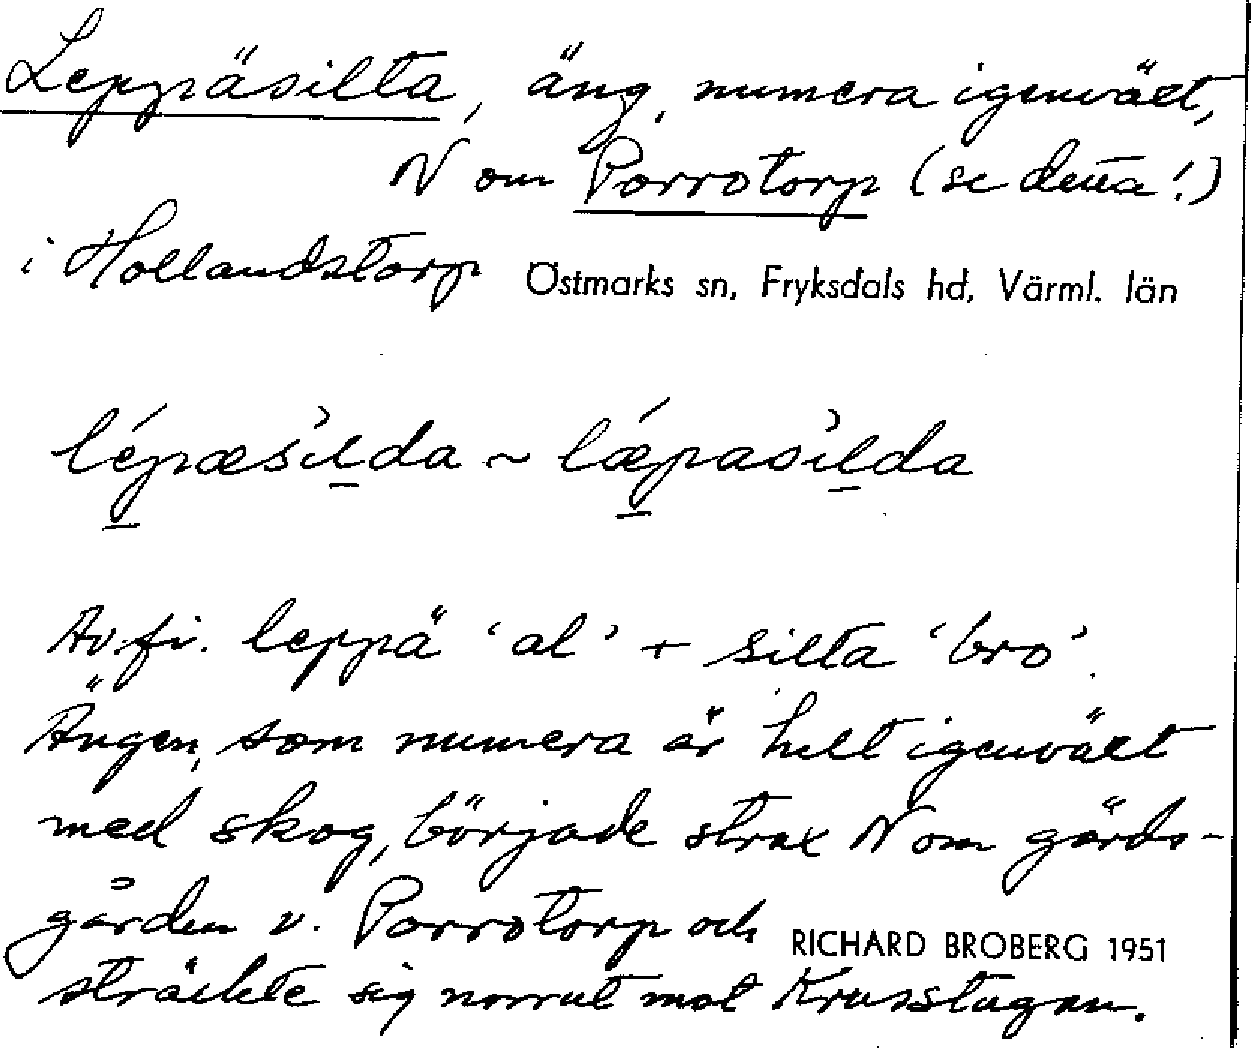 Leppäsilta, äng, numera igenväxt,
N om Porrotorp (se detta!)
i Hollandstorp Östmarks sn, Fryksdals hd, Värml. län
lépæsìlda ~ lǽpasìlda
Av fi. leppä 'al' + silta 'bro'.
Ängen, som numera är helt igenväxt
med skog, började strax N om gärds-
gården v. Porrotorp och
RICHARD BROBERG 1951
sträckte sig norrut mot Krusstugan.